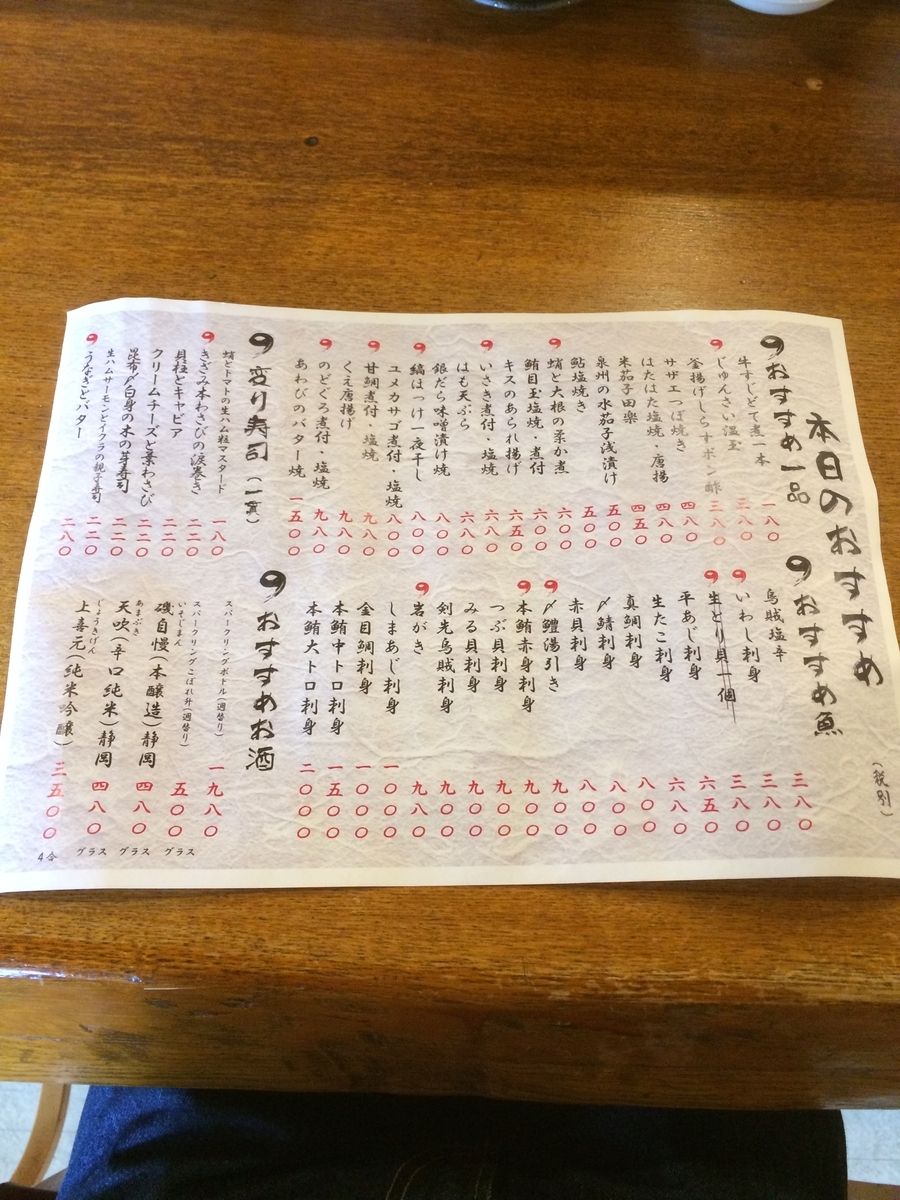 本日のおすすめ
(税別)
おすすめ一品
牛すじどて煮一本 一八〇
じゅんさい温玉 三八〇
釜揚げしらすポン酢 三八〇
サザエつぼ焼き 四八〇
はたはた塩焼・唐揚 四八〇
米茄子田楽 四五〇
泉州の水茄子浅漬け 五〇〇
鮎塩焼き 五〇〇
蛸と大根の柔か煮 六〇〇
鮪目玉塩焼・煮付 六〇〇
キスのあられ揚げ 六五〇
いさき煮付・塩焼 六八〇
はも天ぷら 六八〇
銀だら味噌漬け焼 八〇〇
縞ほっけ一夜干し 八〇〇
ユメカサゴ煮付・塩焼 八〇〇
甘鯛煮付・塩焼 九八〇
くえ唐揚げ 九八〇
のどぐろ煮付・塩焼 九八〇
あわびのバター焼 一五〇〇
変り寿司(一貫)
蛸とトマトの生ハム粒マスタード 一八〇
きざみ本わさびの涙巻き 二二〇
貝柱とキャビア 二二〇
クリームチーズと葉わさび 二二〇
昆布〆白身の木の芽寿司 二二〇
生ハムサーモンとイクラの親子寿司 二二〇
うなぎとバター 二八〇
おすすめ魚
烏賊塩辛 三八〇
いわし刺身 三八〇
生とり貝一個 三八〇
平あじ刺身 六五〇
生たこ刺身 六八〇
真鯛刺身 八〇〇
〆鯖刺身 八〇〇
赤貝刺身 八〇〇
〆鱧湯引き 九〇〇
本鮪赤身刺身 九〇〇
つぶ貝刺身 九〇〇
みる貝刺身 九〇〇
剣先烏賊刺身 九〇〇
岩がき 九八〇
しまあじ刺身 一〇〇〇
金目鯛刺身 一〇〇〇
本鮪中トロ刺身 一五〇〇
本鮪大トロ刺身 二〇〇〇
おすすめお酒
スパークリングボトル(週替り) 一九八〇
スパークリングこぼれ升(週替り) 五〇〇 グラス
いそじまん
磯自慢(本醸造)静岡 四八〇 グラス
あまぶき
天吹(辛口純米)静岡 四八〇 グラス
じょうきげん
上喜元(純米吟醸) 三五〇〇 4合